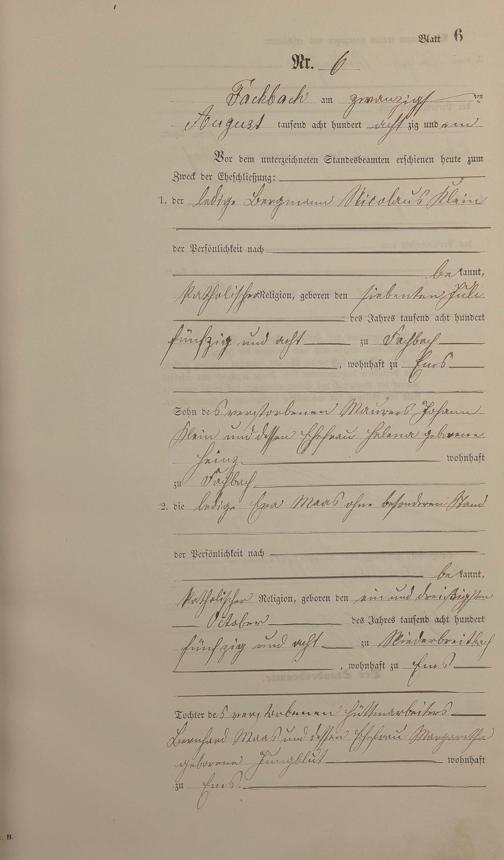 Blatt 6
Nr. 6
Fachbach am zwanzigsten
August tausend acht hundert achtzig und ein
Vor dem unterzeichneten Standesbeamten erschienen heute zum
Zweck der Eheschließung:
1. der ledige Bergmann Nicolaus Klein
der Persönlichkeit nach
bekannt,
katholischer Religion, geboren den siebenten Juli
des Jahres tausend acht hundert
fünfzig und acht zu Fachbach
, wohnhaft zu Ems
Sohn des verstorbenen Maurers Johann
Klein und dessen Ehefrau Helena geborene
Heinz wohnhaft
zu Fachbach
2. die ledige Eva Maas ohne besonderen Stand
der Persönlichkeit nach
bekannt,
katholischer Religion, geboren den ein und dreißigsten
October des Jahres tausend acht hundert
fünfzig und acht zu Niederbreitbach
, wohnhaft zu Ems
Tochter des verstorbenen Hüttenarbeiters
Bernhard Maas und dessen Ehefrau Margarethe
geborene Jungblut wohnhaft
zu Ems.
B.